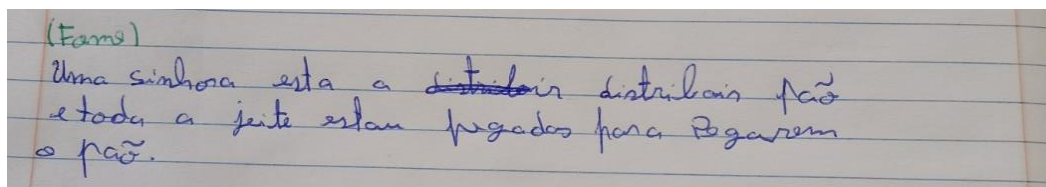 (Fame)
Uma sinhora esta a distribuir pão
e toda a jeite estau pegados para Pegarem
o pão.